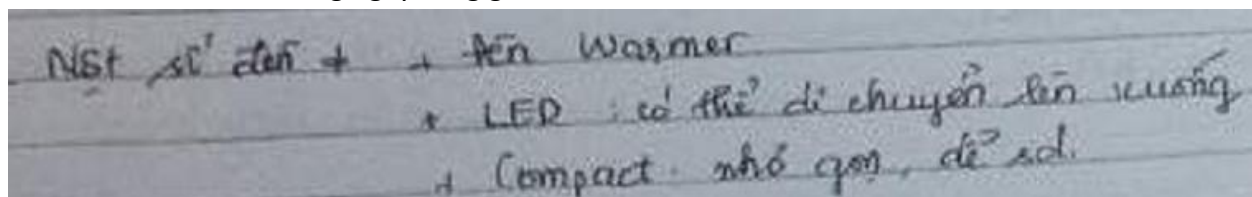 Một số đèn + + đèn Warmer
+ LED : có thể di chuyển lên xuống
+ Compact nhỏ gọn, dễ sd.